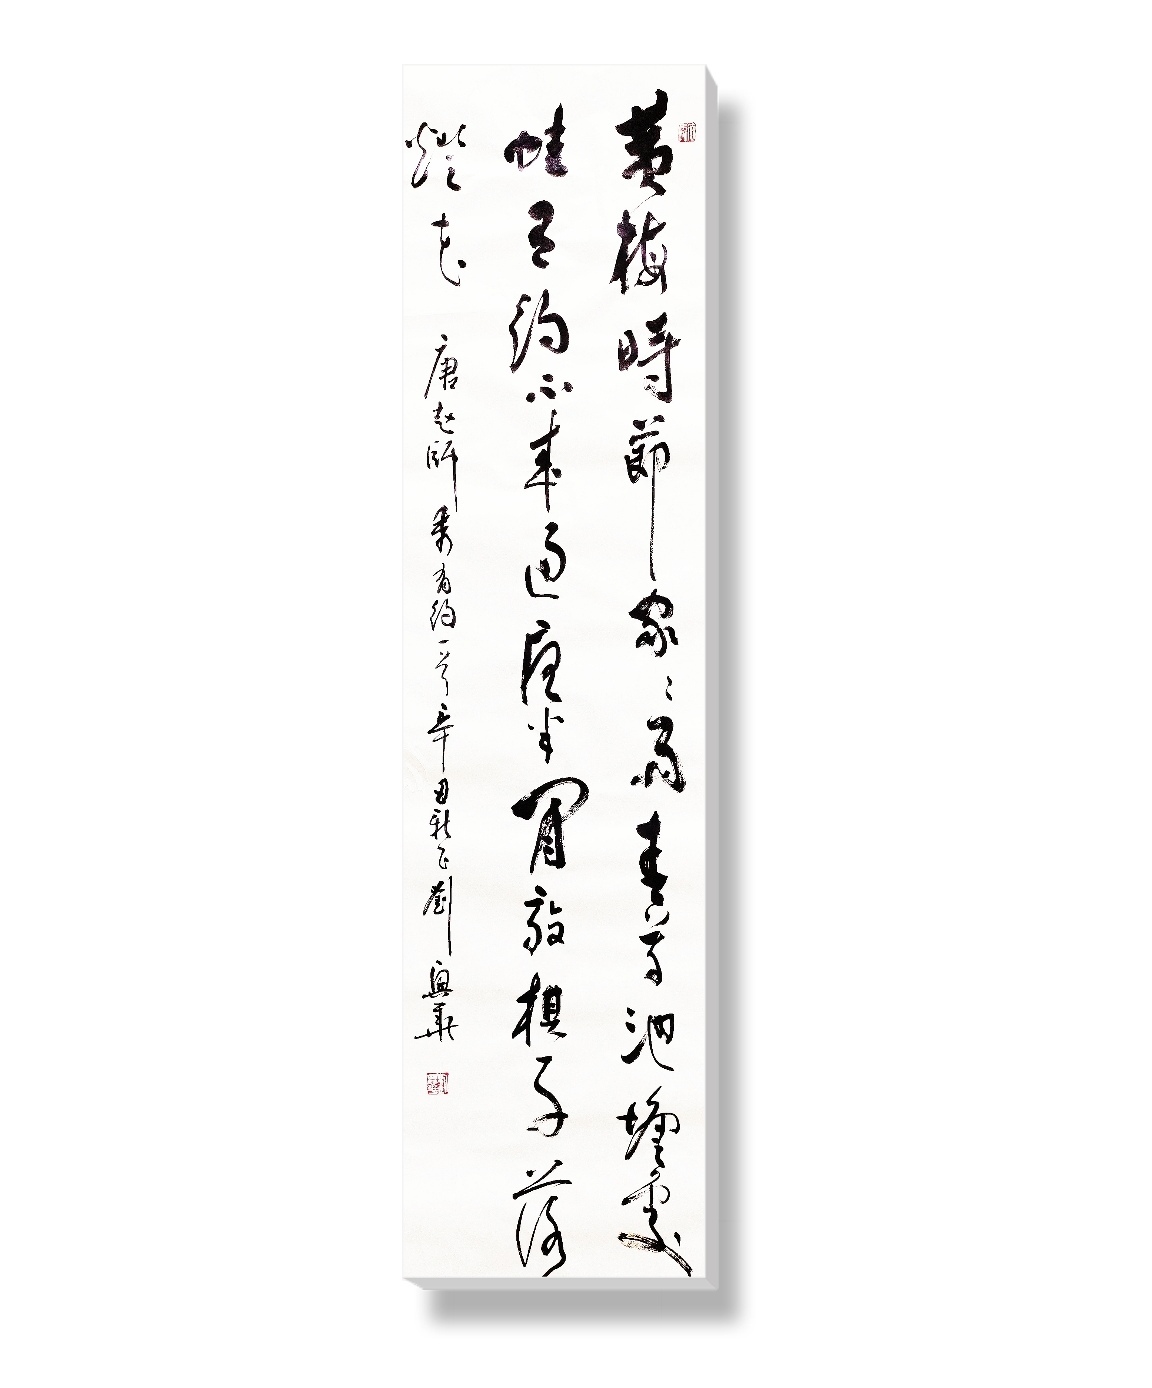 黃梅時節家〻雨青草池塘處〻
蛙有約不來過夜半閒敲棋子落
燈花 唐趙師秀有約一首辛丑新正劉興華